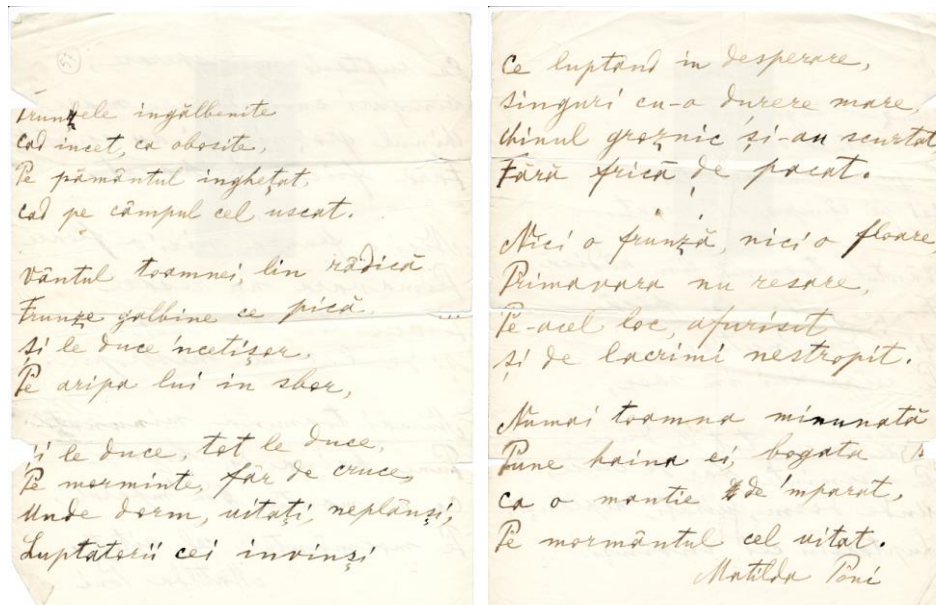 57
Frunzele ingălbenite
Cad incet, ca obosite,
Pe pământul inghețat,
Cad pe câmpul cel uscat.
Vântul toamnei lin rădică
Frunze galbine ce pică,
Și le duce 'ncetișor,
Pe aripa lui in sbor,
Și le duce, tot le duce,
Pe morminte, făr de cruce,
Unde dorm, uitați, neplânși,
Luptatorii cei invinși
Ce luptând in desperare,
Singuri cu-o durere mare,
Chinul groznic și-au scurtat,
Fără frică de pacat.
Nici o frunză, nici o floare,
Primavara nu resare,
Pe-acel loc, afurisit
Și de lacrimi nestropit.
Numai toamna minunată
Pune haina ei, bogata
Ca o mantie de 'mparat,
Pe mormântul cel uitat.
Matilda Poni